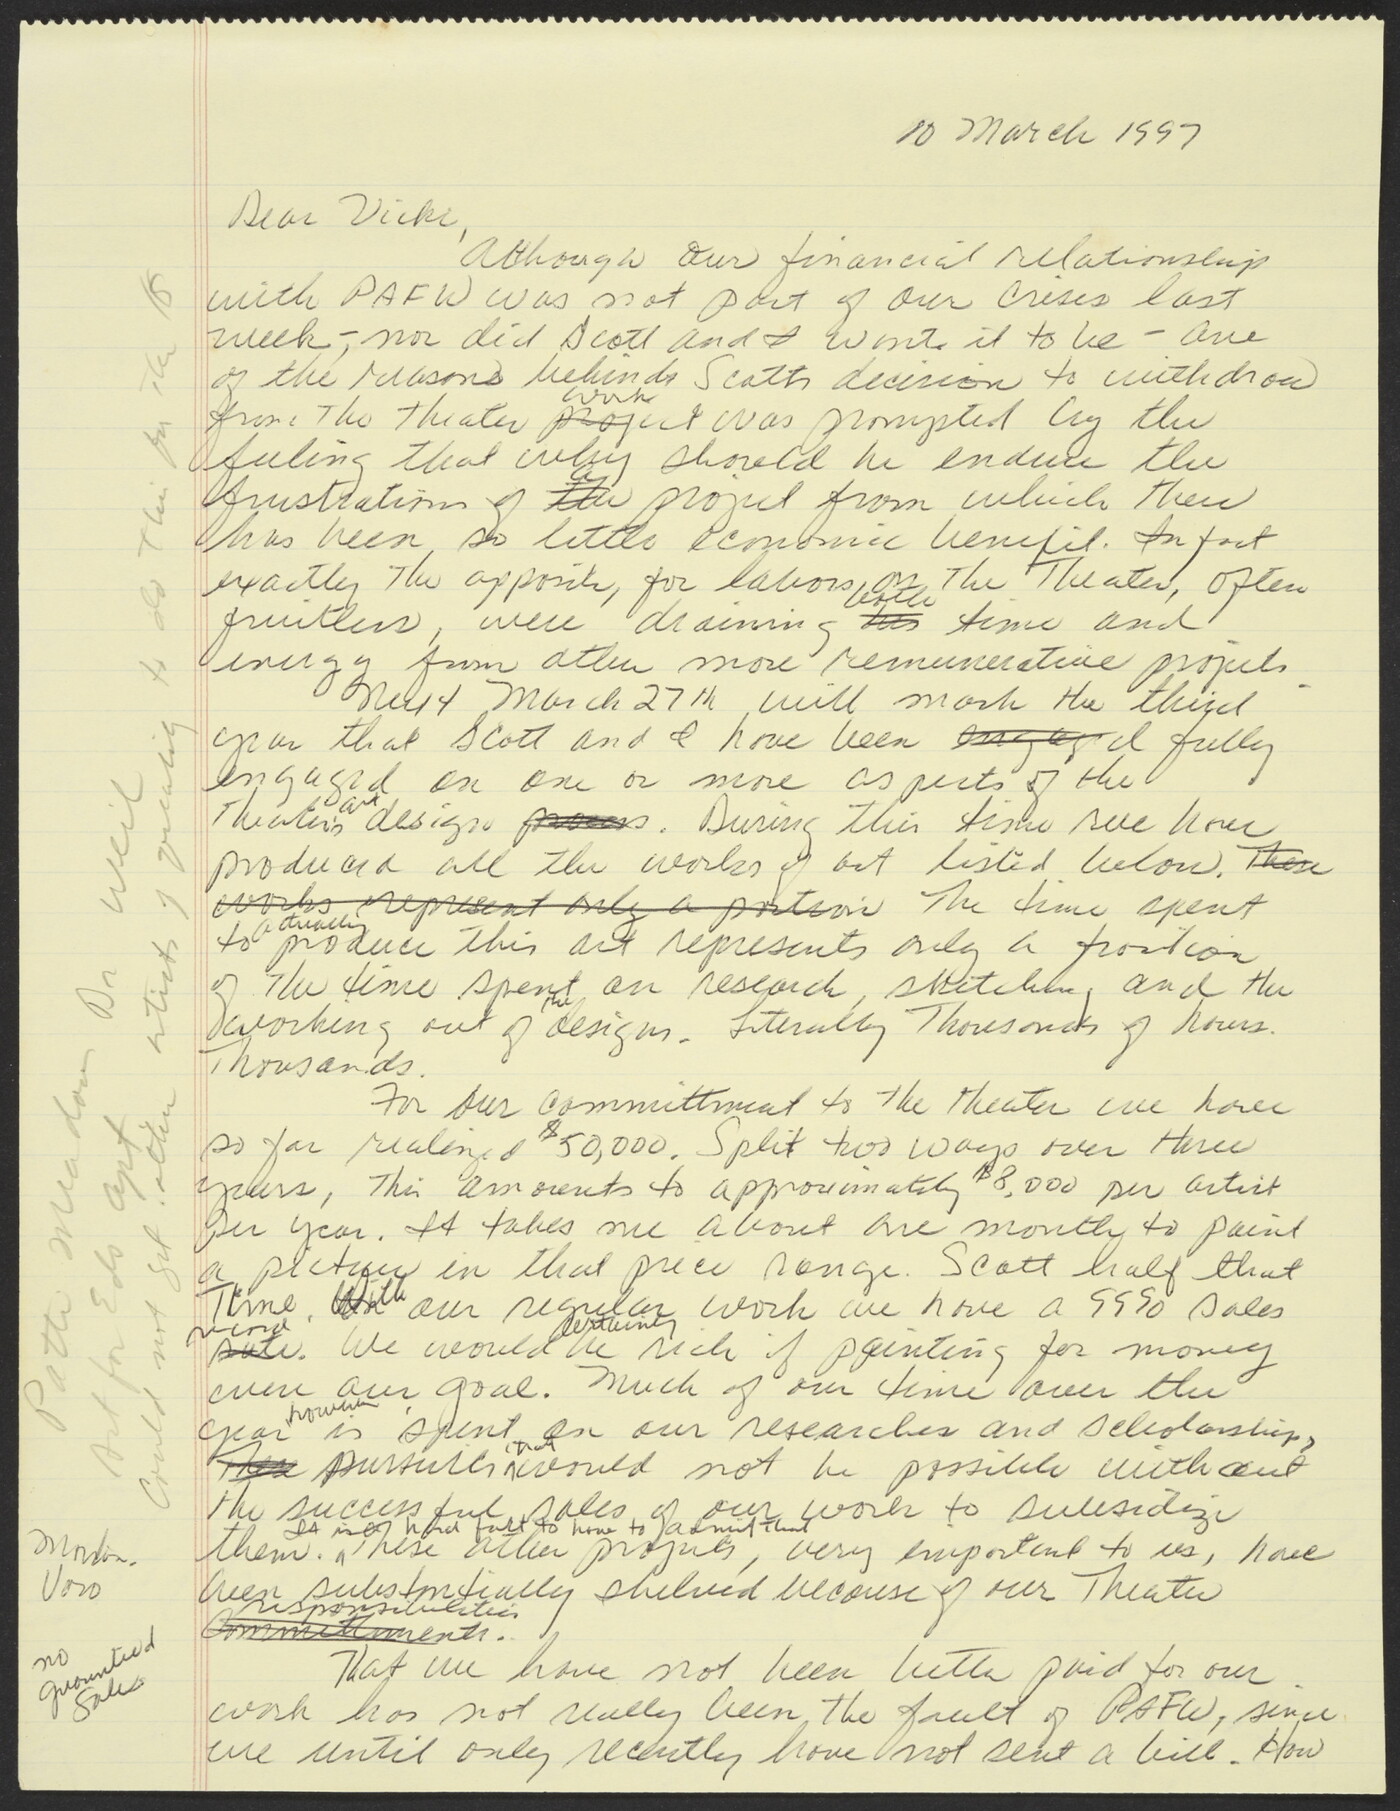 10 March 1997
Dear Vicki,
Although our financial relationship
with PAFW was not part of our crises last
week - nor did Scott and I want it to be - one
of the reasons behind Scott's decision to withdraw
work
from the theater project was prompted by the
feeling that why should he endure the
a
frustrations of the project from which there
has been so little economic benefit. In fact
exactly the opposite, for labors on the Theater, often
both
fruitless, were draining his time and
energy from other more remunerative projects.
Next March 27th will mark the third
year that Scott and I have been engaged fully
engaged on one or more aspects of the
art
Theater's design process. During this time we have
produced all the works of art listed below. These
works represent only a portion The time spent
actually
to produce this art represents only a fraction
of the time spent on research, sketching and the
the
working out of designs. Literally Thousands of hours.
Thousands.
For our committment to the theater we have
so far realized $50,000. Split two ways over three
years, this amounts to approximately $8,000 per artist
per year. It takes me about one month to paint
a picture in that price range. Scott half that
Time. With our regular work we have a 99% sales
record
rate. We would certainly be rich if painting for money
were our goal. Much of our time over the
however
year is spent on our researches and scholarship,
that
These pursuits would not be possible without
the successful sales of our work to subsidize
It is a hard fact to have to admit that
them. These other projects, very important to us, have
been substantially shelved because of our Theater
responsibilities
committments.
That we have not been better paid for our
work has not really been the fault of PAFW, since
we until only recently have not sent a bill. How
Patti Meadow Dr Weil
Art for Eds apt
Could not get other artists of quality to do this for the 18
no
guaranteed
Sales